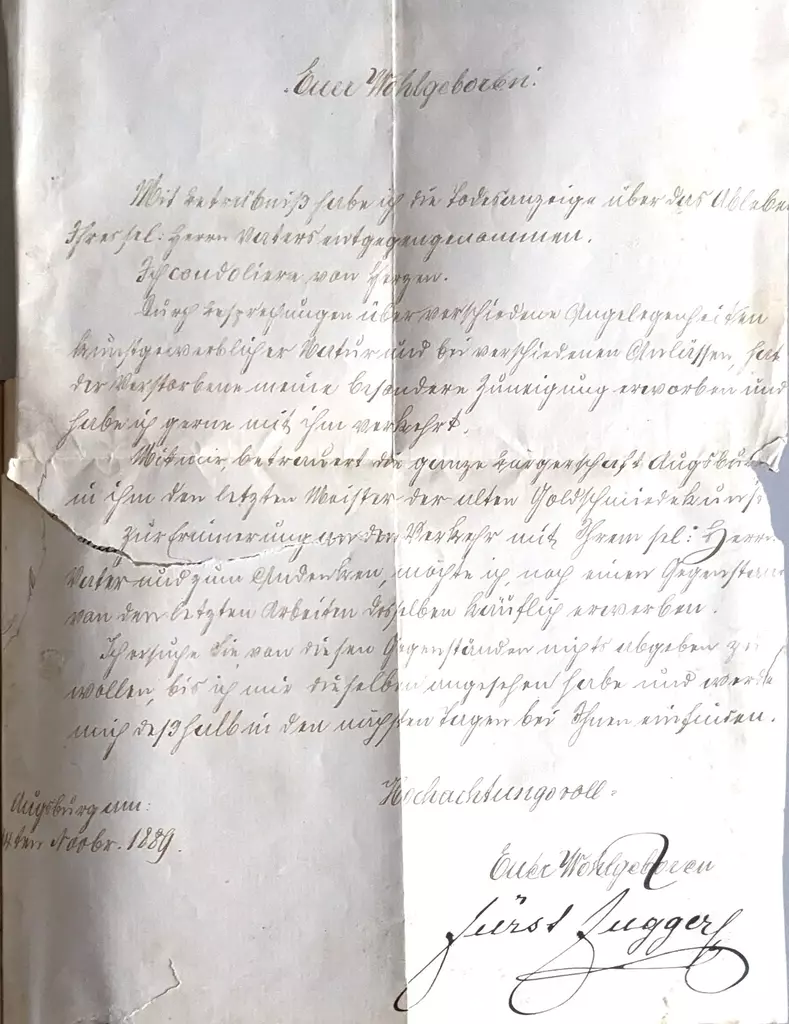 Euer Wohlgeboren!
Mit Betrübniß habe ich die Todesanzeige über das Ablebe
Ihres sel: Herrn Vaters entgegengenommen.
Ich condoliere von Herzen.
Durch Besprechungen über verschiedene Angelegenheiten
kunstgewerblicher Natur und bei verschiedenen Anlässen hat
der Verstorbene meine besondere Zuneigung erworben und
habe ich gerne mit ihm verkehrt.
Mit mir betrauert die ganze Bürgerschaft Augsbur
in ihm den letzten Meister der alten Goldschmiedekuns
Zur Erinnerung an den Verkehr mit Ihrem sel: Herrn
Vater und zum Andenken, möchte ich noch einen Gegenstan
von den letzten Arbeiten desselben käuflich erwerben.
Ich ersuche Sie von diesen Gegenständen nichts abgeben zu
wollen, bis ich mir dieselben angesehen habe und werde
mich deßhalb in den nächsten Tagen bei Ihnen einfinden.
Hochachtungsvoll
Augsburg am:
4ten Novbr. 1889.
Euer Wohlgeboren
Fürst Fugger